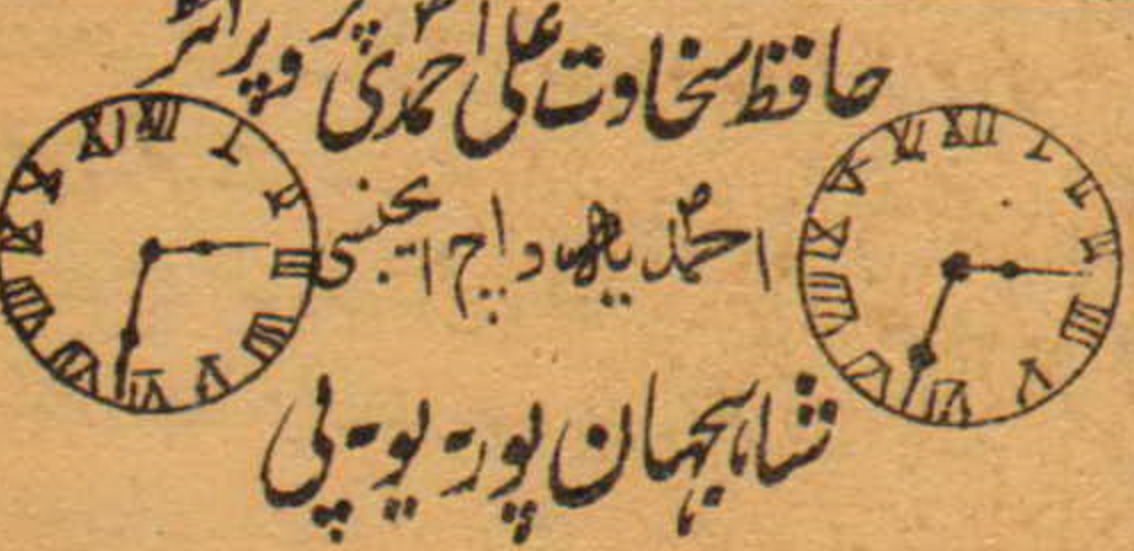 حافظ سخاوت علی احمدی پروپرائٹر
احمدیہ واچ ایجنسی
شاہجہان پور۔ یو۔ پی
XII I II III IIII V VI VII VIII IX X XI
XII I II III IIII V VI VII VIII IX X XI